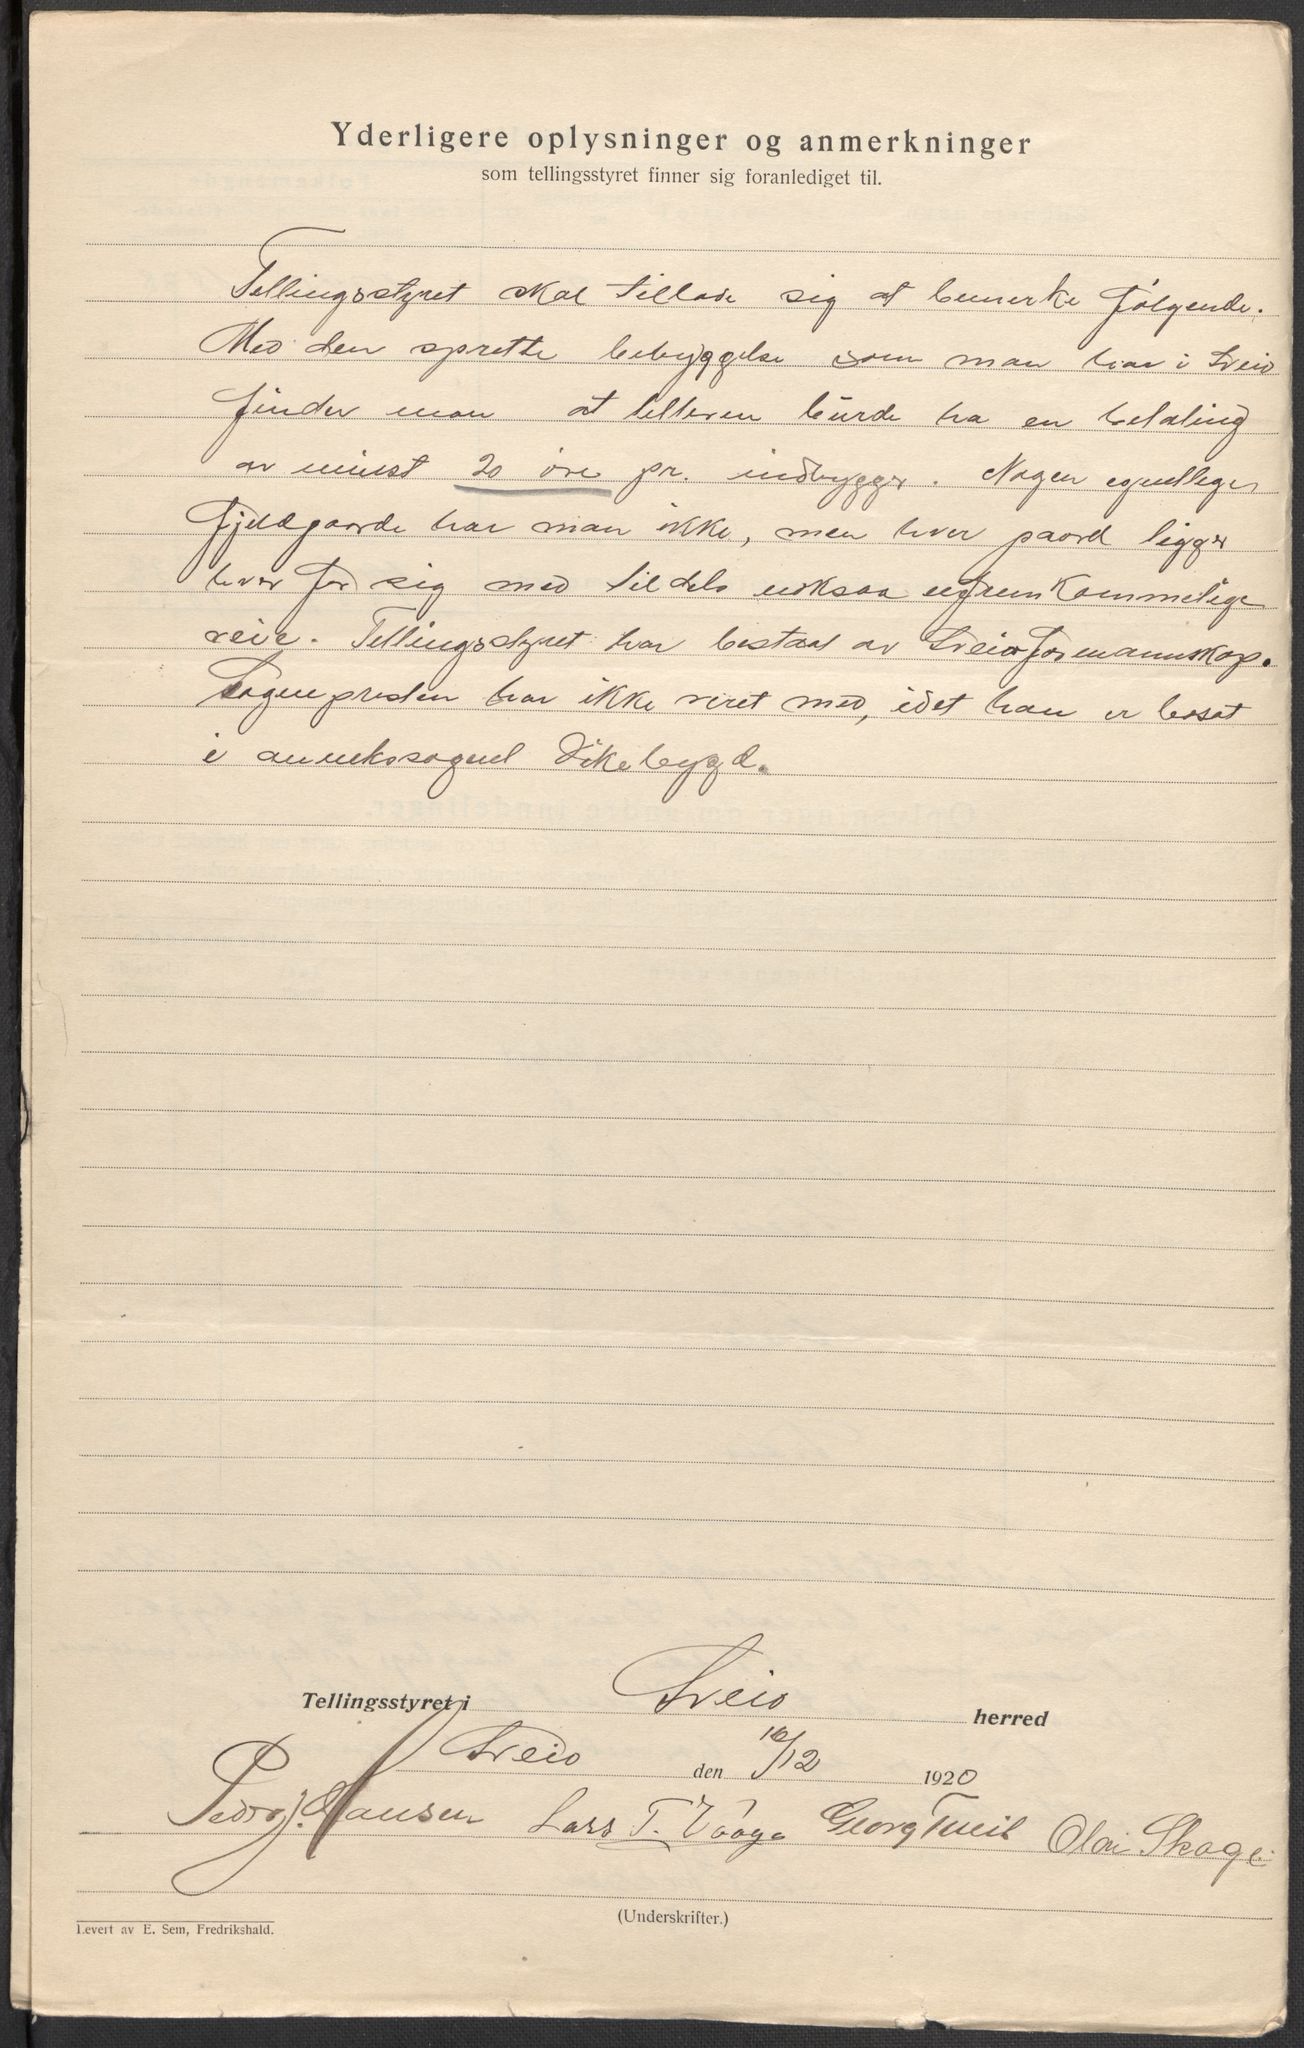 Yderligere oplysninger og anmerkninger
som tellingsstyret finner sig foranlediget til.
Tellingsstyret skal tillade sig at bemerke følgende.
Med den spredte bebyggelse som man har i Sveio
finder man at telleren burde ha en betaling
av minst 20 øre pr. indbygger. Nogen egentlige
fjeldgaarde har man ikke, men hver gaard ligger
hver for sig med tildels noksaa ufremkommelige
veie. Tellingsstyret har bestaat av Sveio formannskap.
Sognepresten har ikke veret med, idet han er bosat
i annekssognet Vikebygd.
Tellingsstyret i Sveio herred
Sveio den 16/12 1920
Pedro J. Hansen Lars T. Vaage Georg Tveit Olai Skoge
(Underskrifter.)
Levert av E. Sem, Fredrikshald.